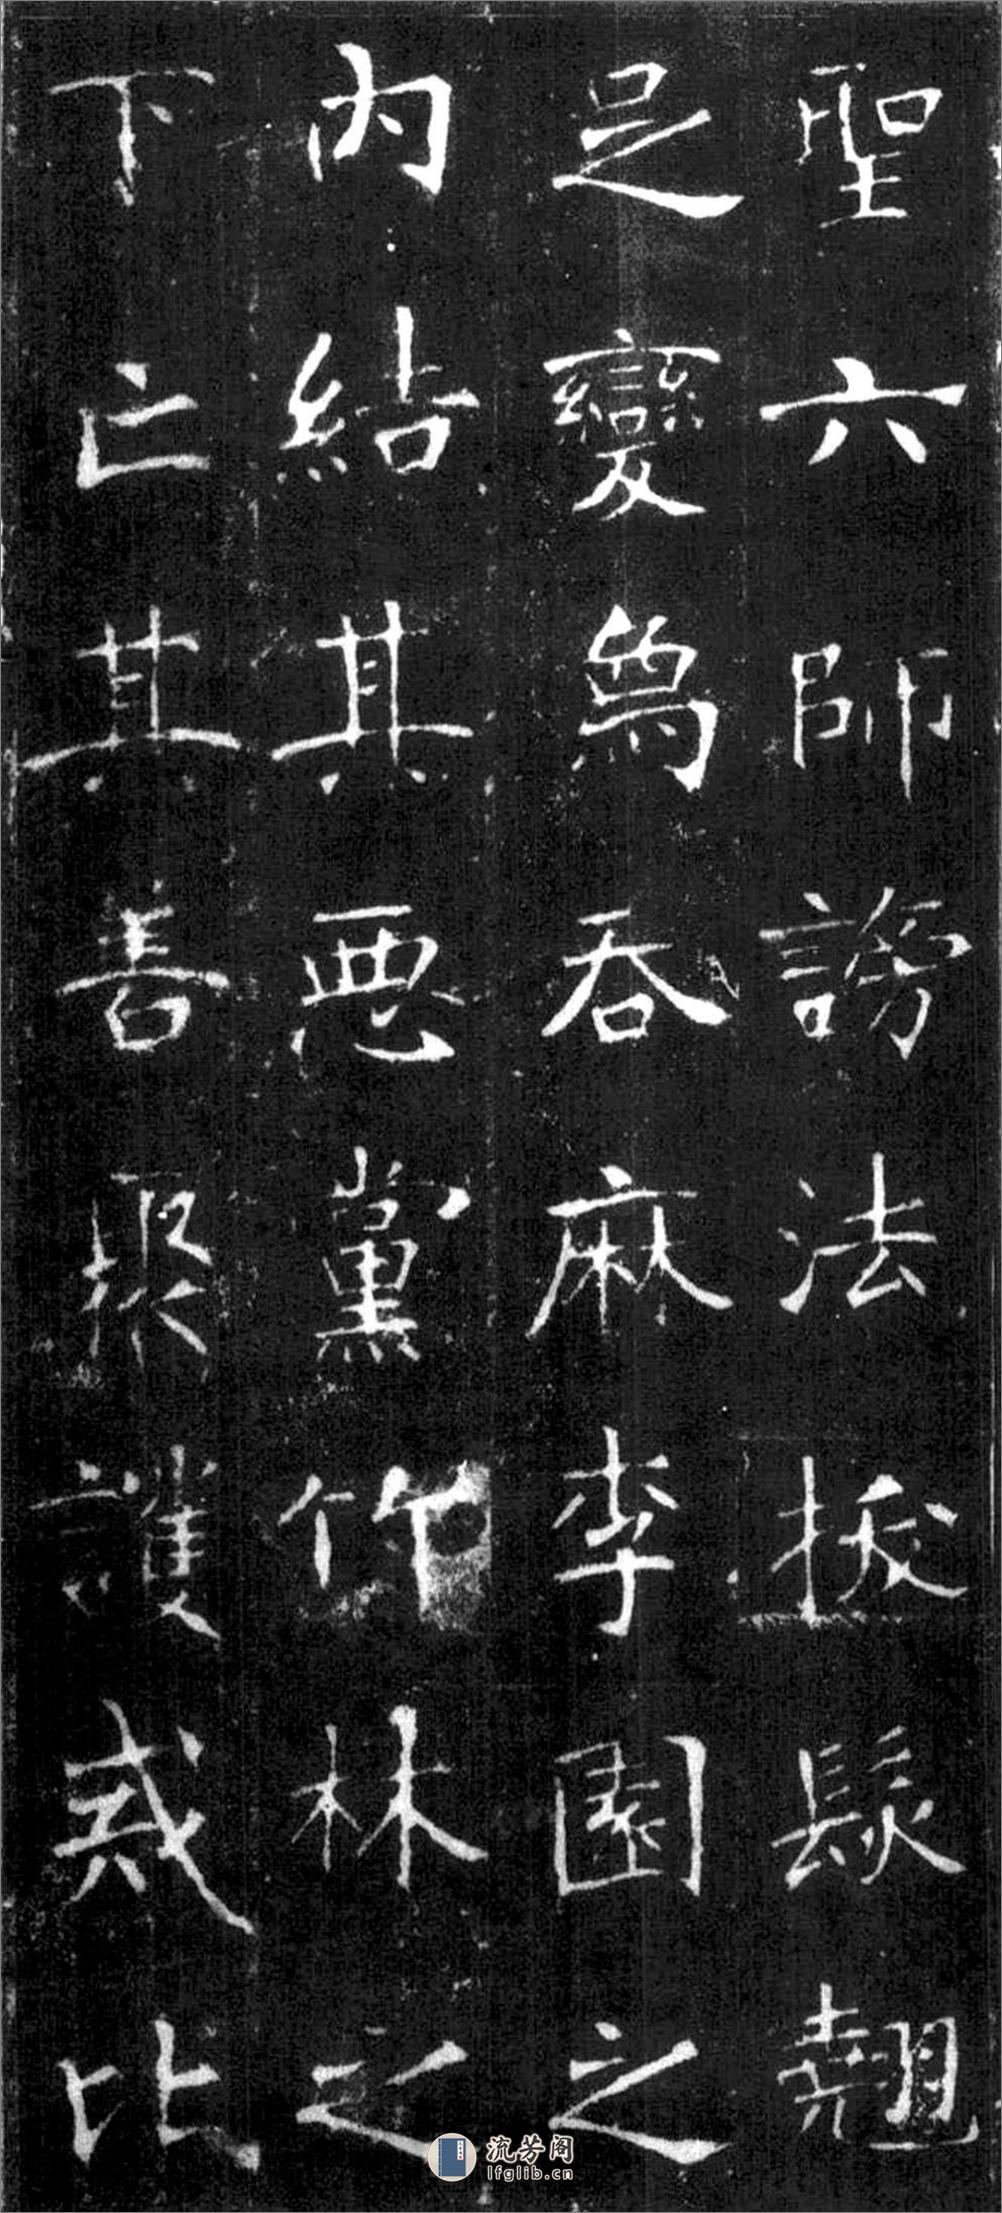 聖六師謗法拔髮翹
足變爲吞麻李園之
內結其惡黨竹林之
下亡其善聚護戒比
流芳阁
lfglib.cn